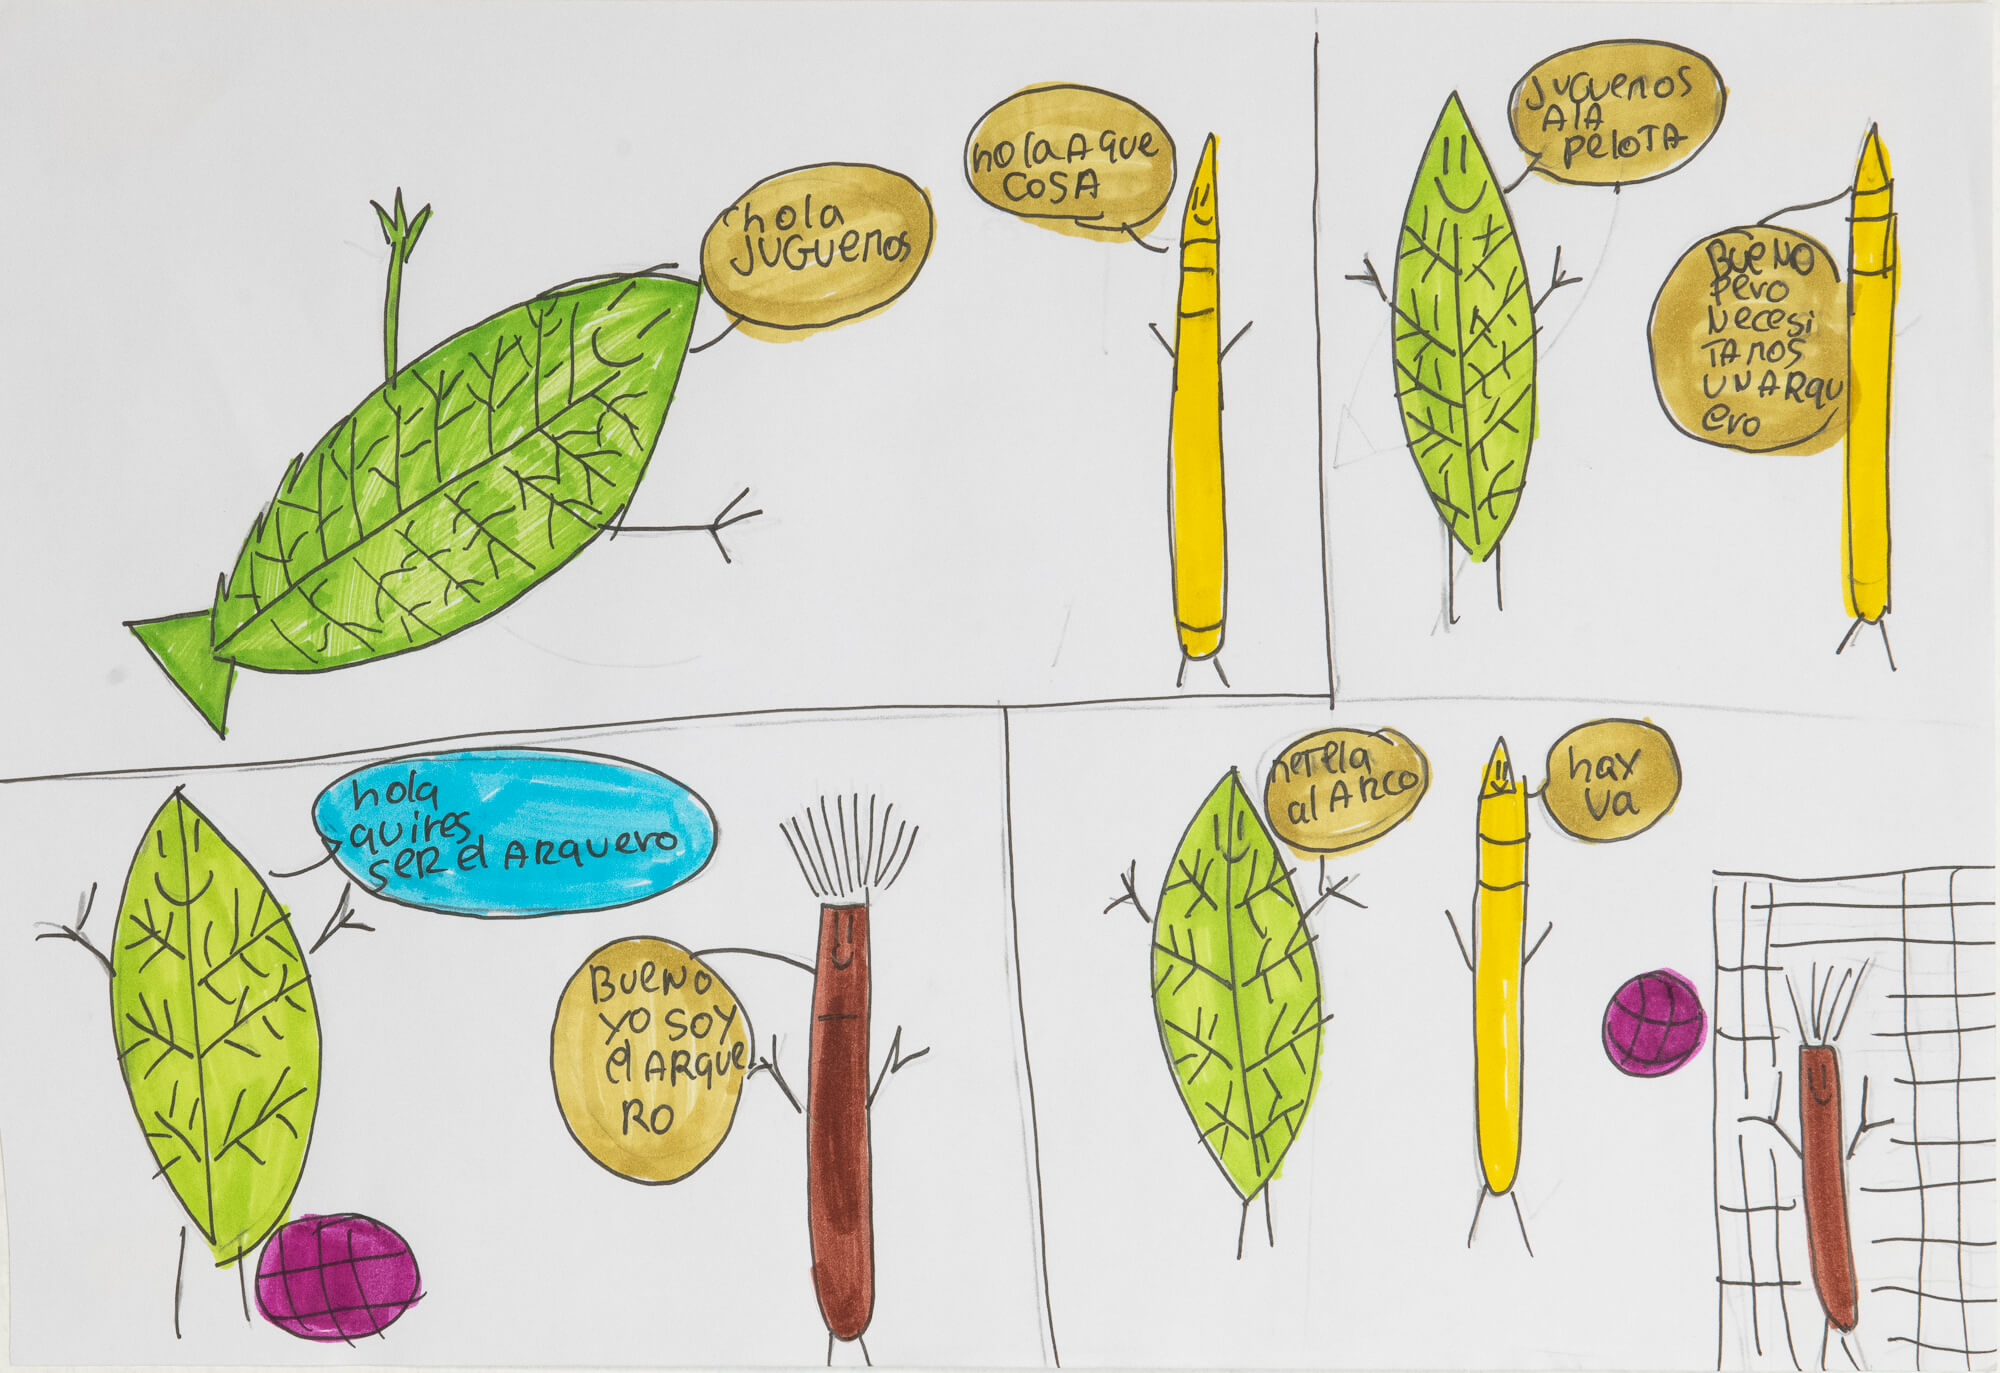 hola
JUGUEMOS
hola A que
COSA
JUGUEMOS
A lA
PELOTA
BUENO
Pero
Necesi
TAMOS
UN ARQU
ero
hola
quires
SER el ARQUERO
BUENO
YO SOY
el ARQUE
RO
METELA
al ARCO
hay
va